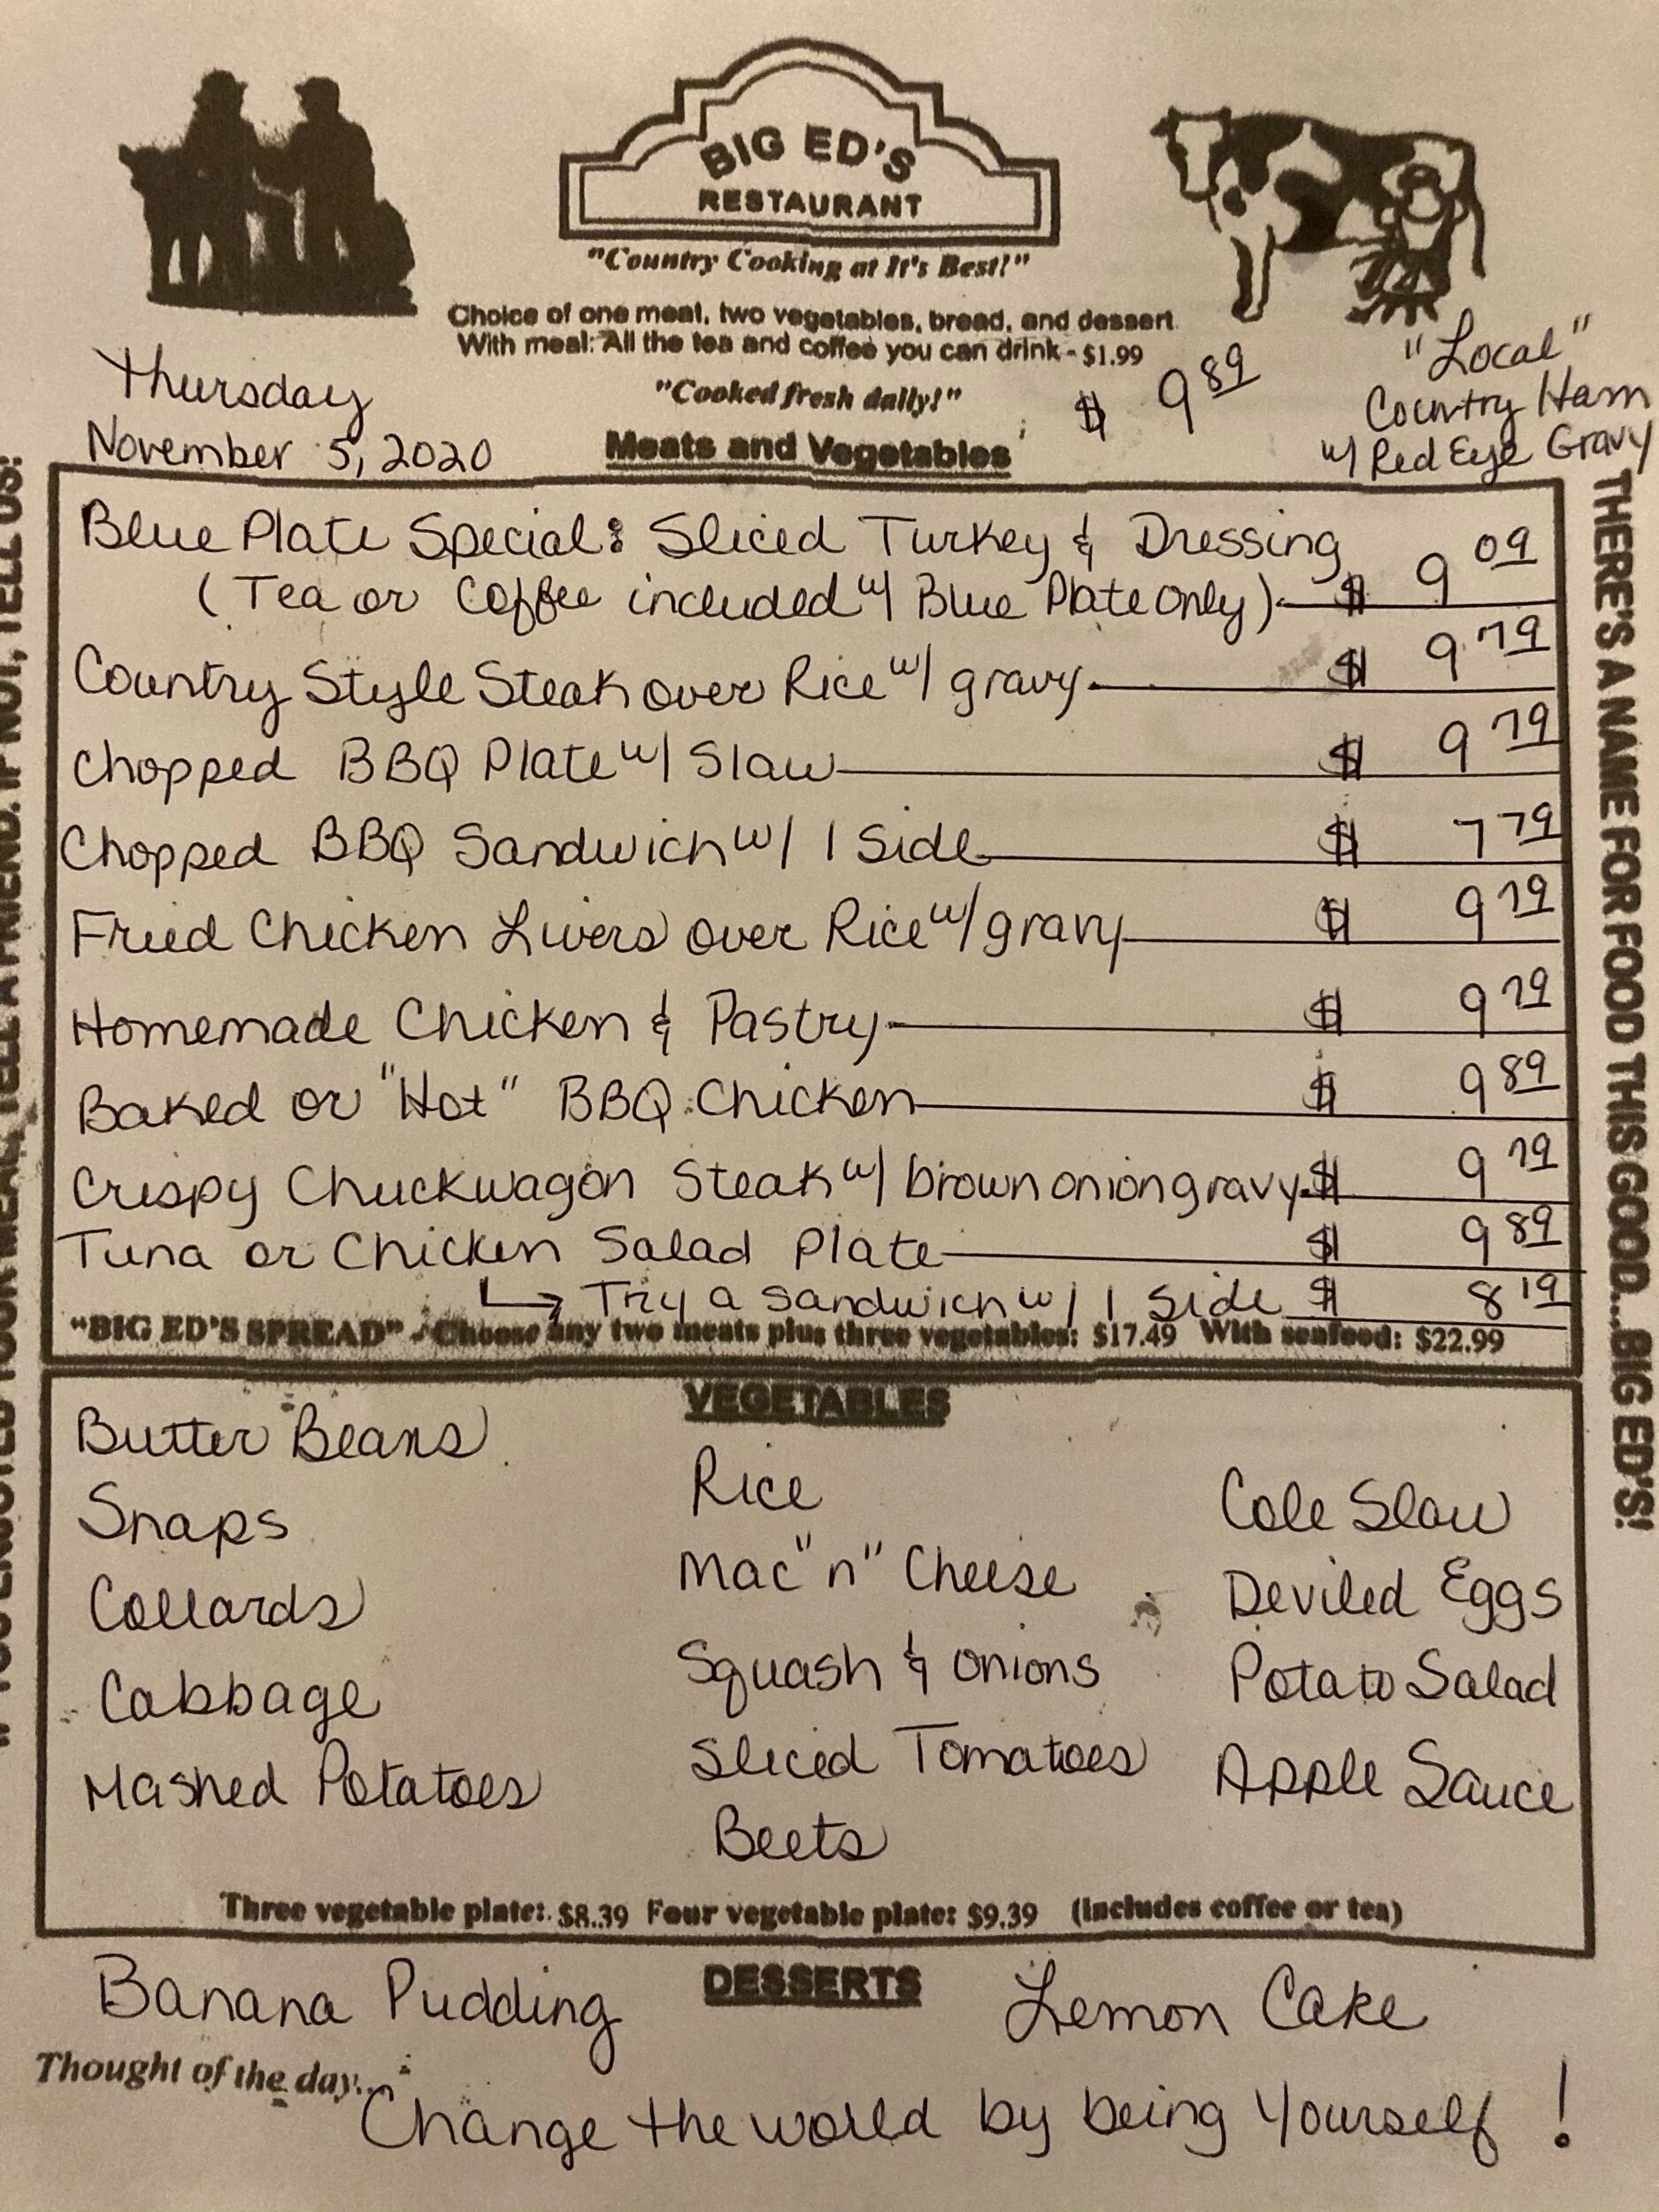 BIG ED'S
RESTAURANT
"Country Cooking at It's Best!"
Choice of one meat, two vegetables, bread, and dessert
With meal: All the tea and coffee you can drink - $1.99
"Cooked fresh daily!"
$ 9 89
"Local"
Country Ham
w/ Red Eye Gravy
Thursday
November 5, 2020
Meats and Vegetables
Blue Plate Special: Sliced Turkey & Dressing
(Tea or Coffee included w/ Blue Plate Only) $ 9 09
Country Style Steak over Rice w/ gravy $ 9 79
Chopped BBQ Plate w/ Slaw $ 9 79
Chopped BBQ Sandwich w/ 1 Side $ 7 79
Fried Chicken Livers over Rice w/ gravy $ 9 79
Homemade Chicken & Pastry $ 9 79
Baked or "Hot" BBQ Chicken $ 9 89
Crispy Chuckwagon Steak w/ brown onion gravy $ 9 79
Tuna or Chicken Salad Plate $ 9 89
↳ Try a sandwich w/ 1 Side $ 8 19
"BIG ED'S SPREAD" - Choose any two meats plus three vegetables: $17.49 With seafood: $22.99
VEGETABLES
Butter Beans
Snaps
Collards
Cabbage
Mashed Potatoes
Rice
Mac "n" Cheese
Squash & Onions
Sliced Tomatoes
Beets
Cole Slaw
Deviled Eggs
Potato Salad
Apple Sauce
Three vegetable plate: $8.39 Four vegetable plate: $9.39 (includes coffee or tea)
DESSERTS
Banana Pudding
Lemon Cake
Thought of the day...
Change the world by being Yourself!
YOUR MEAL, TELL A FRIEND. IF NOT, TELL US!
THERE'S A NAME FOR FOOD THIS GOOD...BIG ED'S!